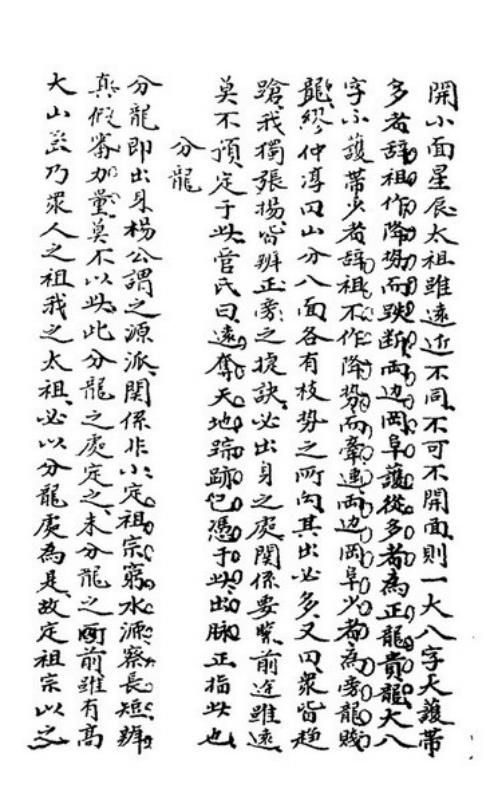 開小面星辰太祖雖遠近不同不可不開面則一大八字大護帶
多者辞祖作降勢而跌断両边岡阜護從多者為正龍貴龍大八
字小護帶少者辞祖不作降勢而牽連両边岡阜少者為旁龍賤
龍繆仲淳曰山分八面各有枝勢之所向其出必多又曰衆皆趋
蹌我獨張揚皆辨正旁之捷訣必出身之處関係要緊前途雖遠
莫不預定于此管氏曰遠奪天地踪跡已憑于此出脉正指此也
分龍
分龍即出身楊公謂之源派関係非小定祖宗窮水源察長短辨
真假審加量莫不以此此分龍之處定之未分龍之前雖有高
大山並乃衆人之祖我之太祖必以分龍處為是故定祖宗以之